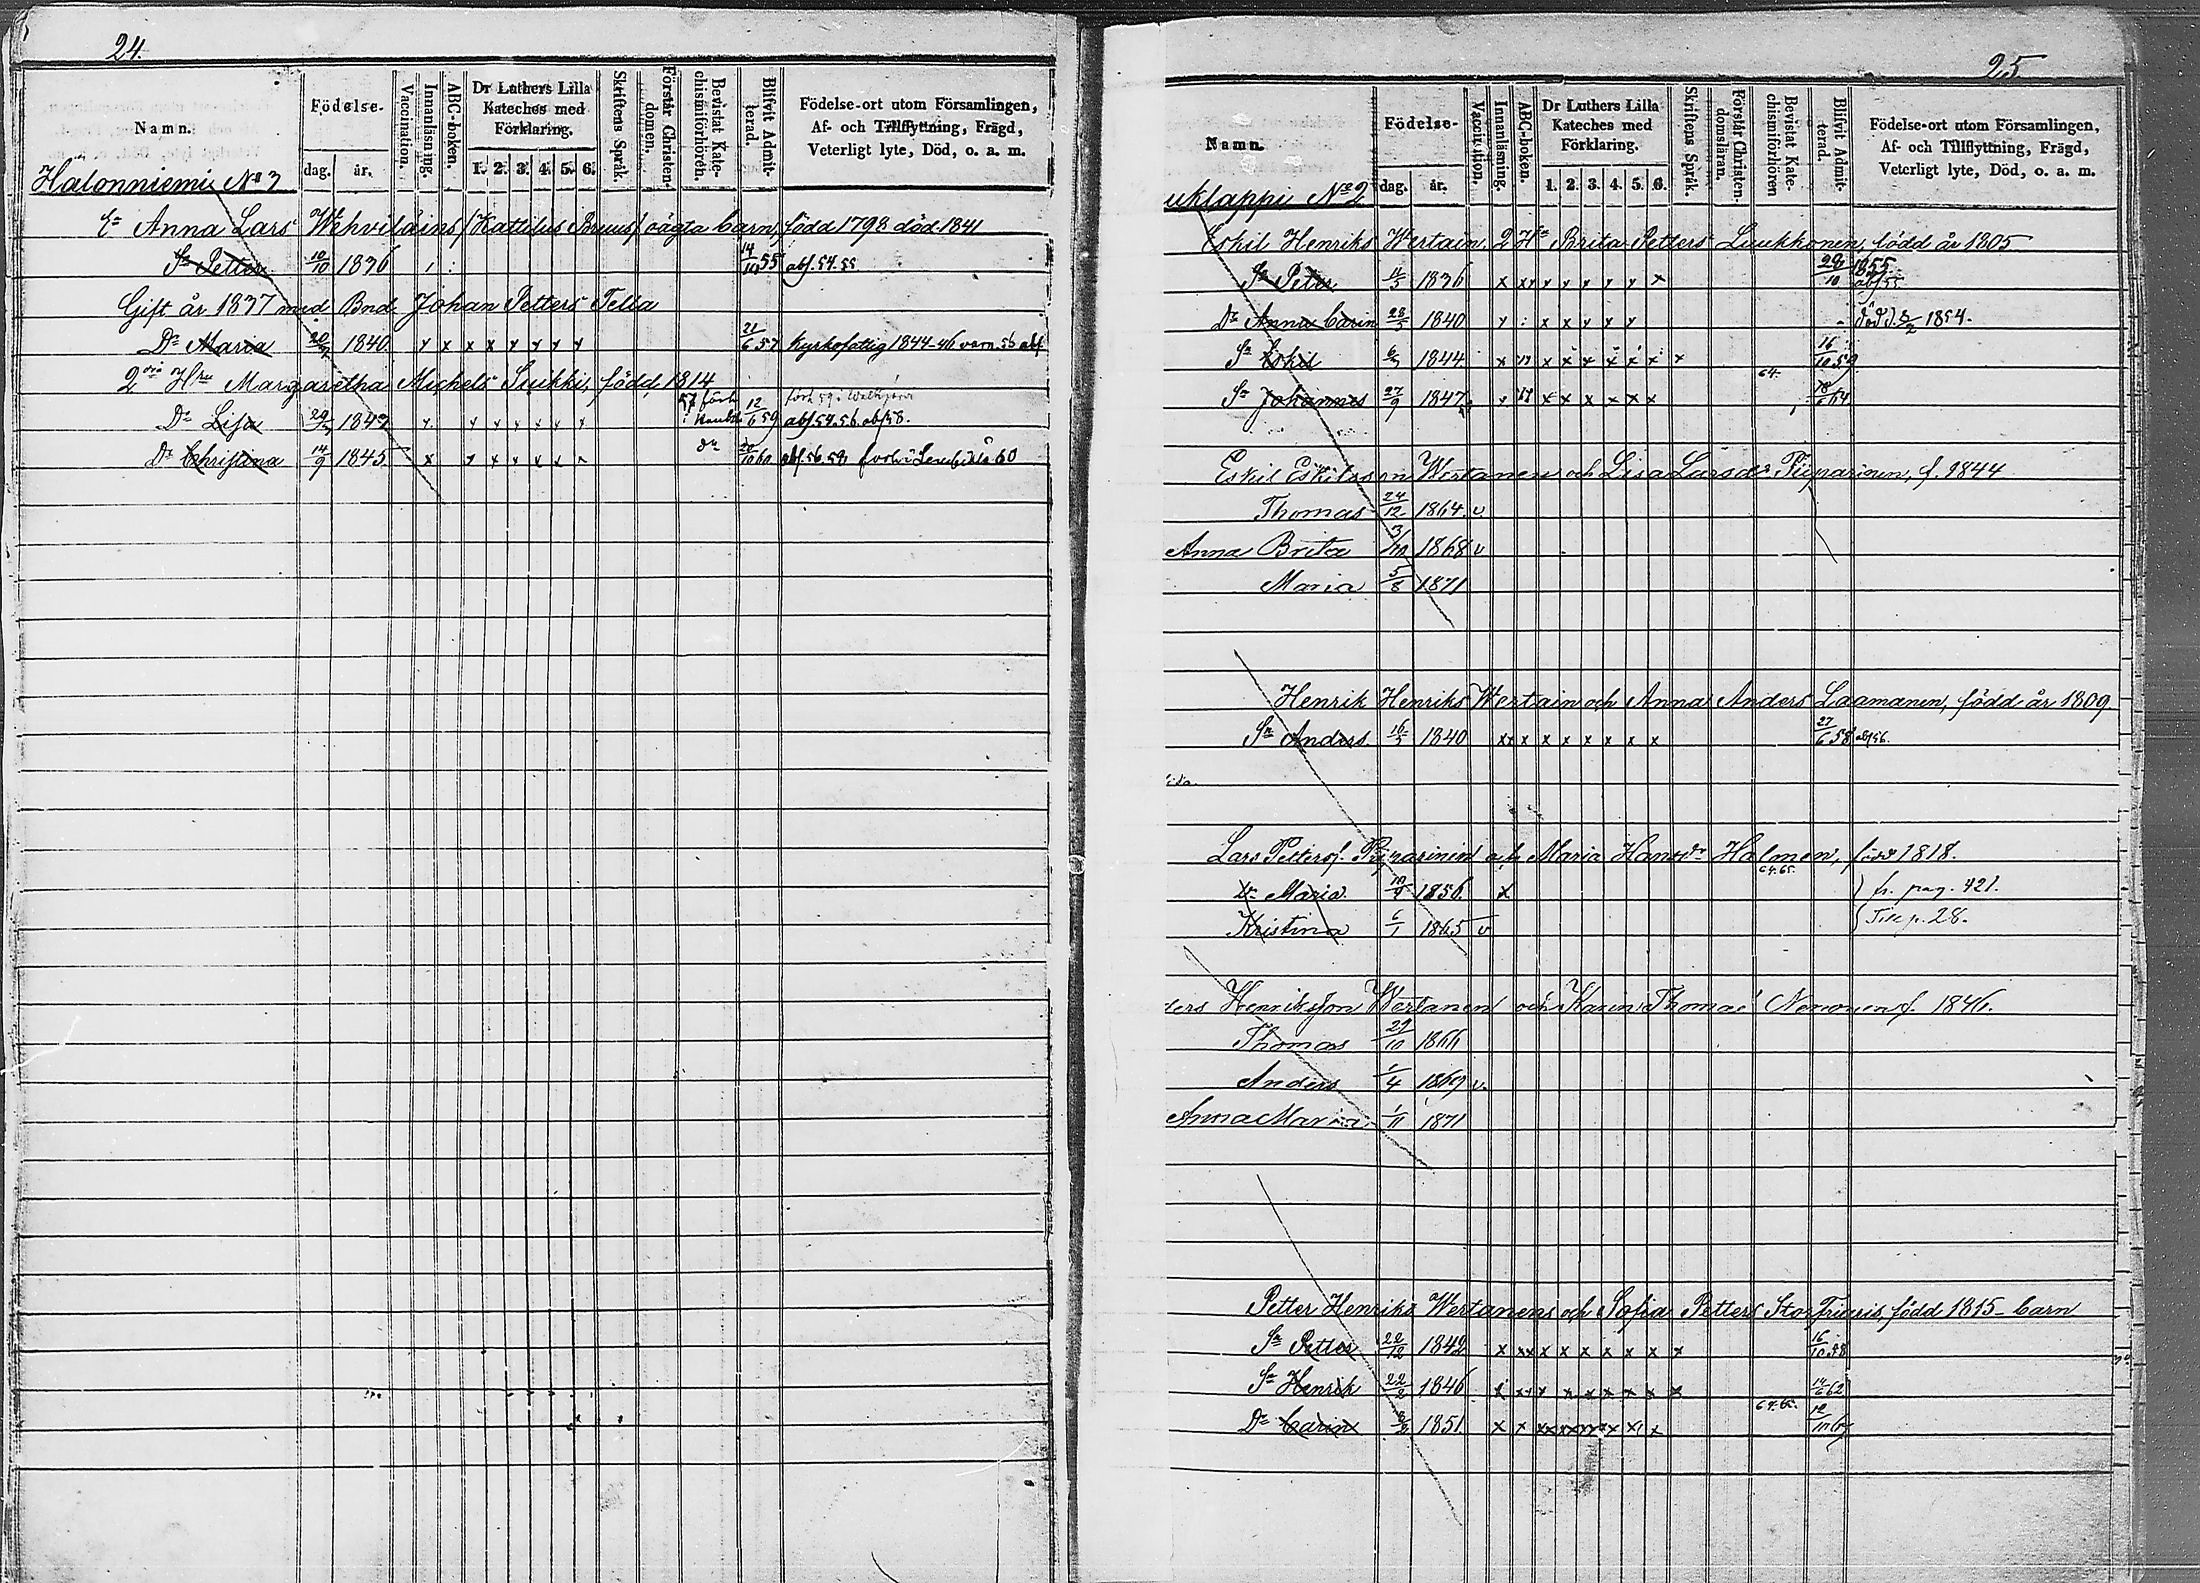 24.
Namn.
Födelse-
dag.
år.
Vaccination.
Innanläsning.
ABC-boken.
Dr Luthers Lilla
Kateches med
Förklaring.
1. 2. 3. 4. 5. 6.
Skriftens Språk.
Förstår Christen-
domen.
Bevistat Kate-
chismiförhören.
Blifvit Admit-
terad.
Födelse-ort utom Församlingen,
Af- och Tillflyttning, Frägd,
Veterligt lyte, Död, o. a. m.
Halonniemi No 3
Anna Lars Wehviläins oägta barn, född 1798 död 1841
Sn Petter 10/10 1836 14/10 55 abs. 54. 55
Gift år 1837 med Bnd Johan Petters Tella
Dr Maria 1840 x x x x x x x x 21/6 57 Kyrkofattig 1844-46
2 Margaretha Michels Siukki, född 1814
Dr Lisa 1842 x x x x x x x 12/6 59 abs. 54. 56. abs 58.
Dr Christina 14/9 1845 x x x x x x x 20/10 60 abs. 56. 58 60
25
Namn.
Födelse-
dag.
år.
Vaccination.
Innanläsning.
ABC-boken.
Dr Luthers Lilla
Kateches med
Förklaring.
1. 2. 3. 4. 5. 6.
Skriftens Språk.
Förstår Christen-
domsläran.
Bevistat Kate-
chismiförhören
Blifvit Admit-
terad.
Födelse-ort utom Församlingen,
Af- och Tillflyttning, Frägd,
Veterligt lyte, Död, o. a. m.
uklappi No 2
Eskil Henriks Wertain, 2 Brita Petters Luukkonen, född år 1805
Sn Peter 1836 x xx x x x x x x 1855 abs 55
Dr Anna Carin 1840 x : x x x x x död d. 5/2 1854.
Sn Eskil 1844 x x x x x x x x x 16/10 59
Sn Johannes 27/9 1847 x x x x x x x 64. 64
Eskil Eskilsson Wertanen och Lisa Larsdr Piiparinen, f. 1844
Thomas 24/12 1864. v.
Anna Brita 3/10 1868 v
Maria 5/8 1871
Henrik Henriks Wertain och Anna Anders Laamanen, född år 1809
Sn Anders 16/5 1840 xx x x x x x x x 27/6 58 abs 56.
Lars Petters. Piiparinen och Maria Hansdr Halonen, född 1818.
Dr Maria. 1856. x 64. 65. fr. pag. 421.
Kristina 6/1 1865 v Till p. 28.
ders Henriksson Wertanen och Karin Thomas Nenonen f. 1846.
Thomas 29/10 1866
Anders 1/4 1869 v.
Anna Maria 1/11 1871
Petter Henriks Wertanens och Sofia Petters född 1815 barn
Sn Petter 22/12 1842 x xx x x x x x x x 16/10 58
Sn Henrik 22/2 1846 x xx x x x x x x x 14/6 62
Dr Carin 1851 x x xx xx xx x x x 64. 65. 12/10 67